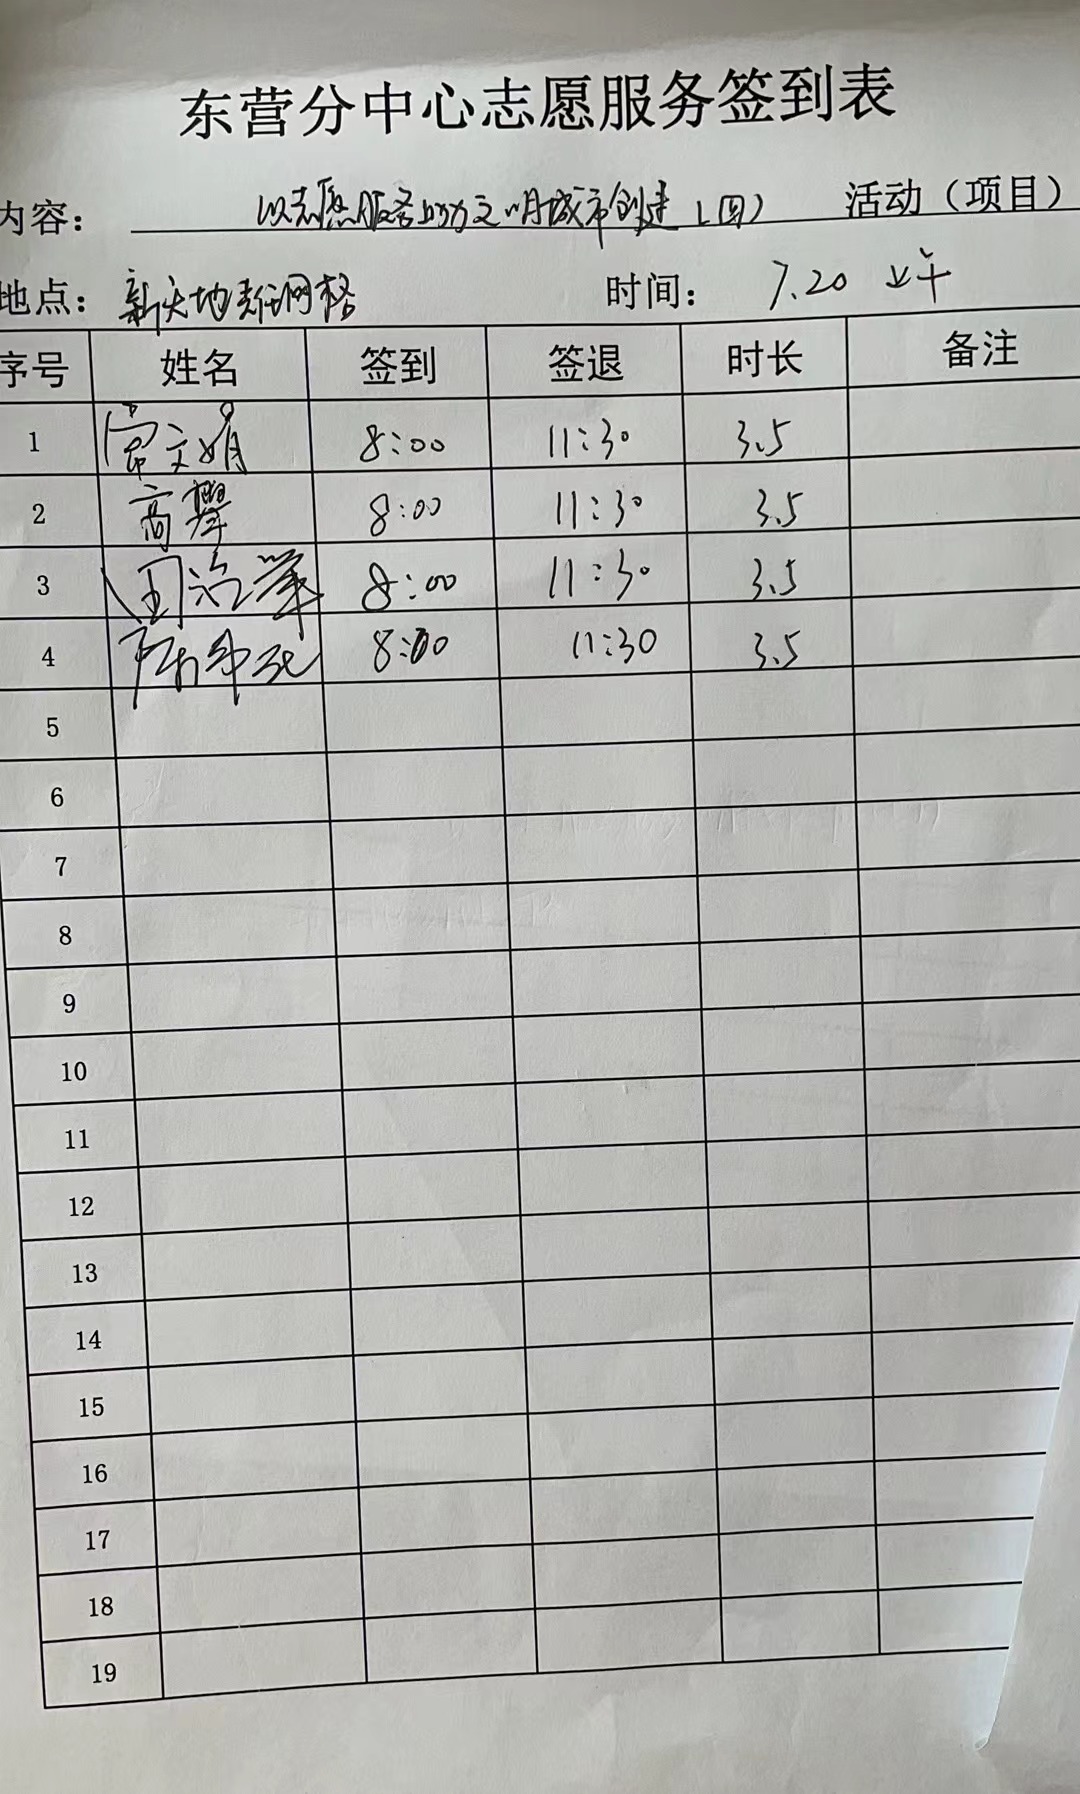 东营分中心志愿服务签到表
内容： 以志愿服务助力文明城市创建（四） 活动（项目）
地点： 新天地责任网格 时间： 7.20 上午
序号 姓名 签到 签退 时长 备注
1 常文娟 8:00 11:30 3.5
2 高攀 8:00 11:30 3.5
3 8:00 11:30 3.5
4 8:00 11:30 3.5
5
6
7
8
9
10
11
12
13
14
15
16
17
18
19